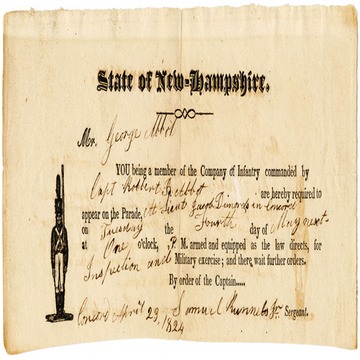 State of New-Hampshire.
Mr. George Abbot
YOU being a member of the Company of Infantry commanded by
Capt Robert D Abbot are hereby required to
appear on the Parade, at Lieut Jacob Dimonds in Concord
on Tuesday the Fourth day of May next
at One o'clock, P. M. armed and equipped as the law directs, for
Inspection and Military exercise; and there wait further orders.
By order of the Captain.....
Concord April 29, 1824 Samuel Runnels Jr. Sergeant.